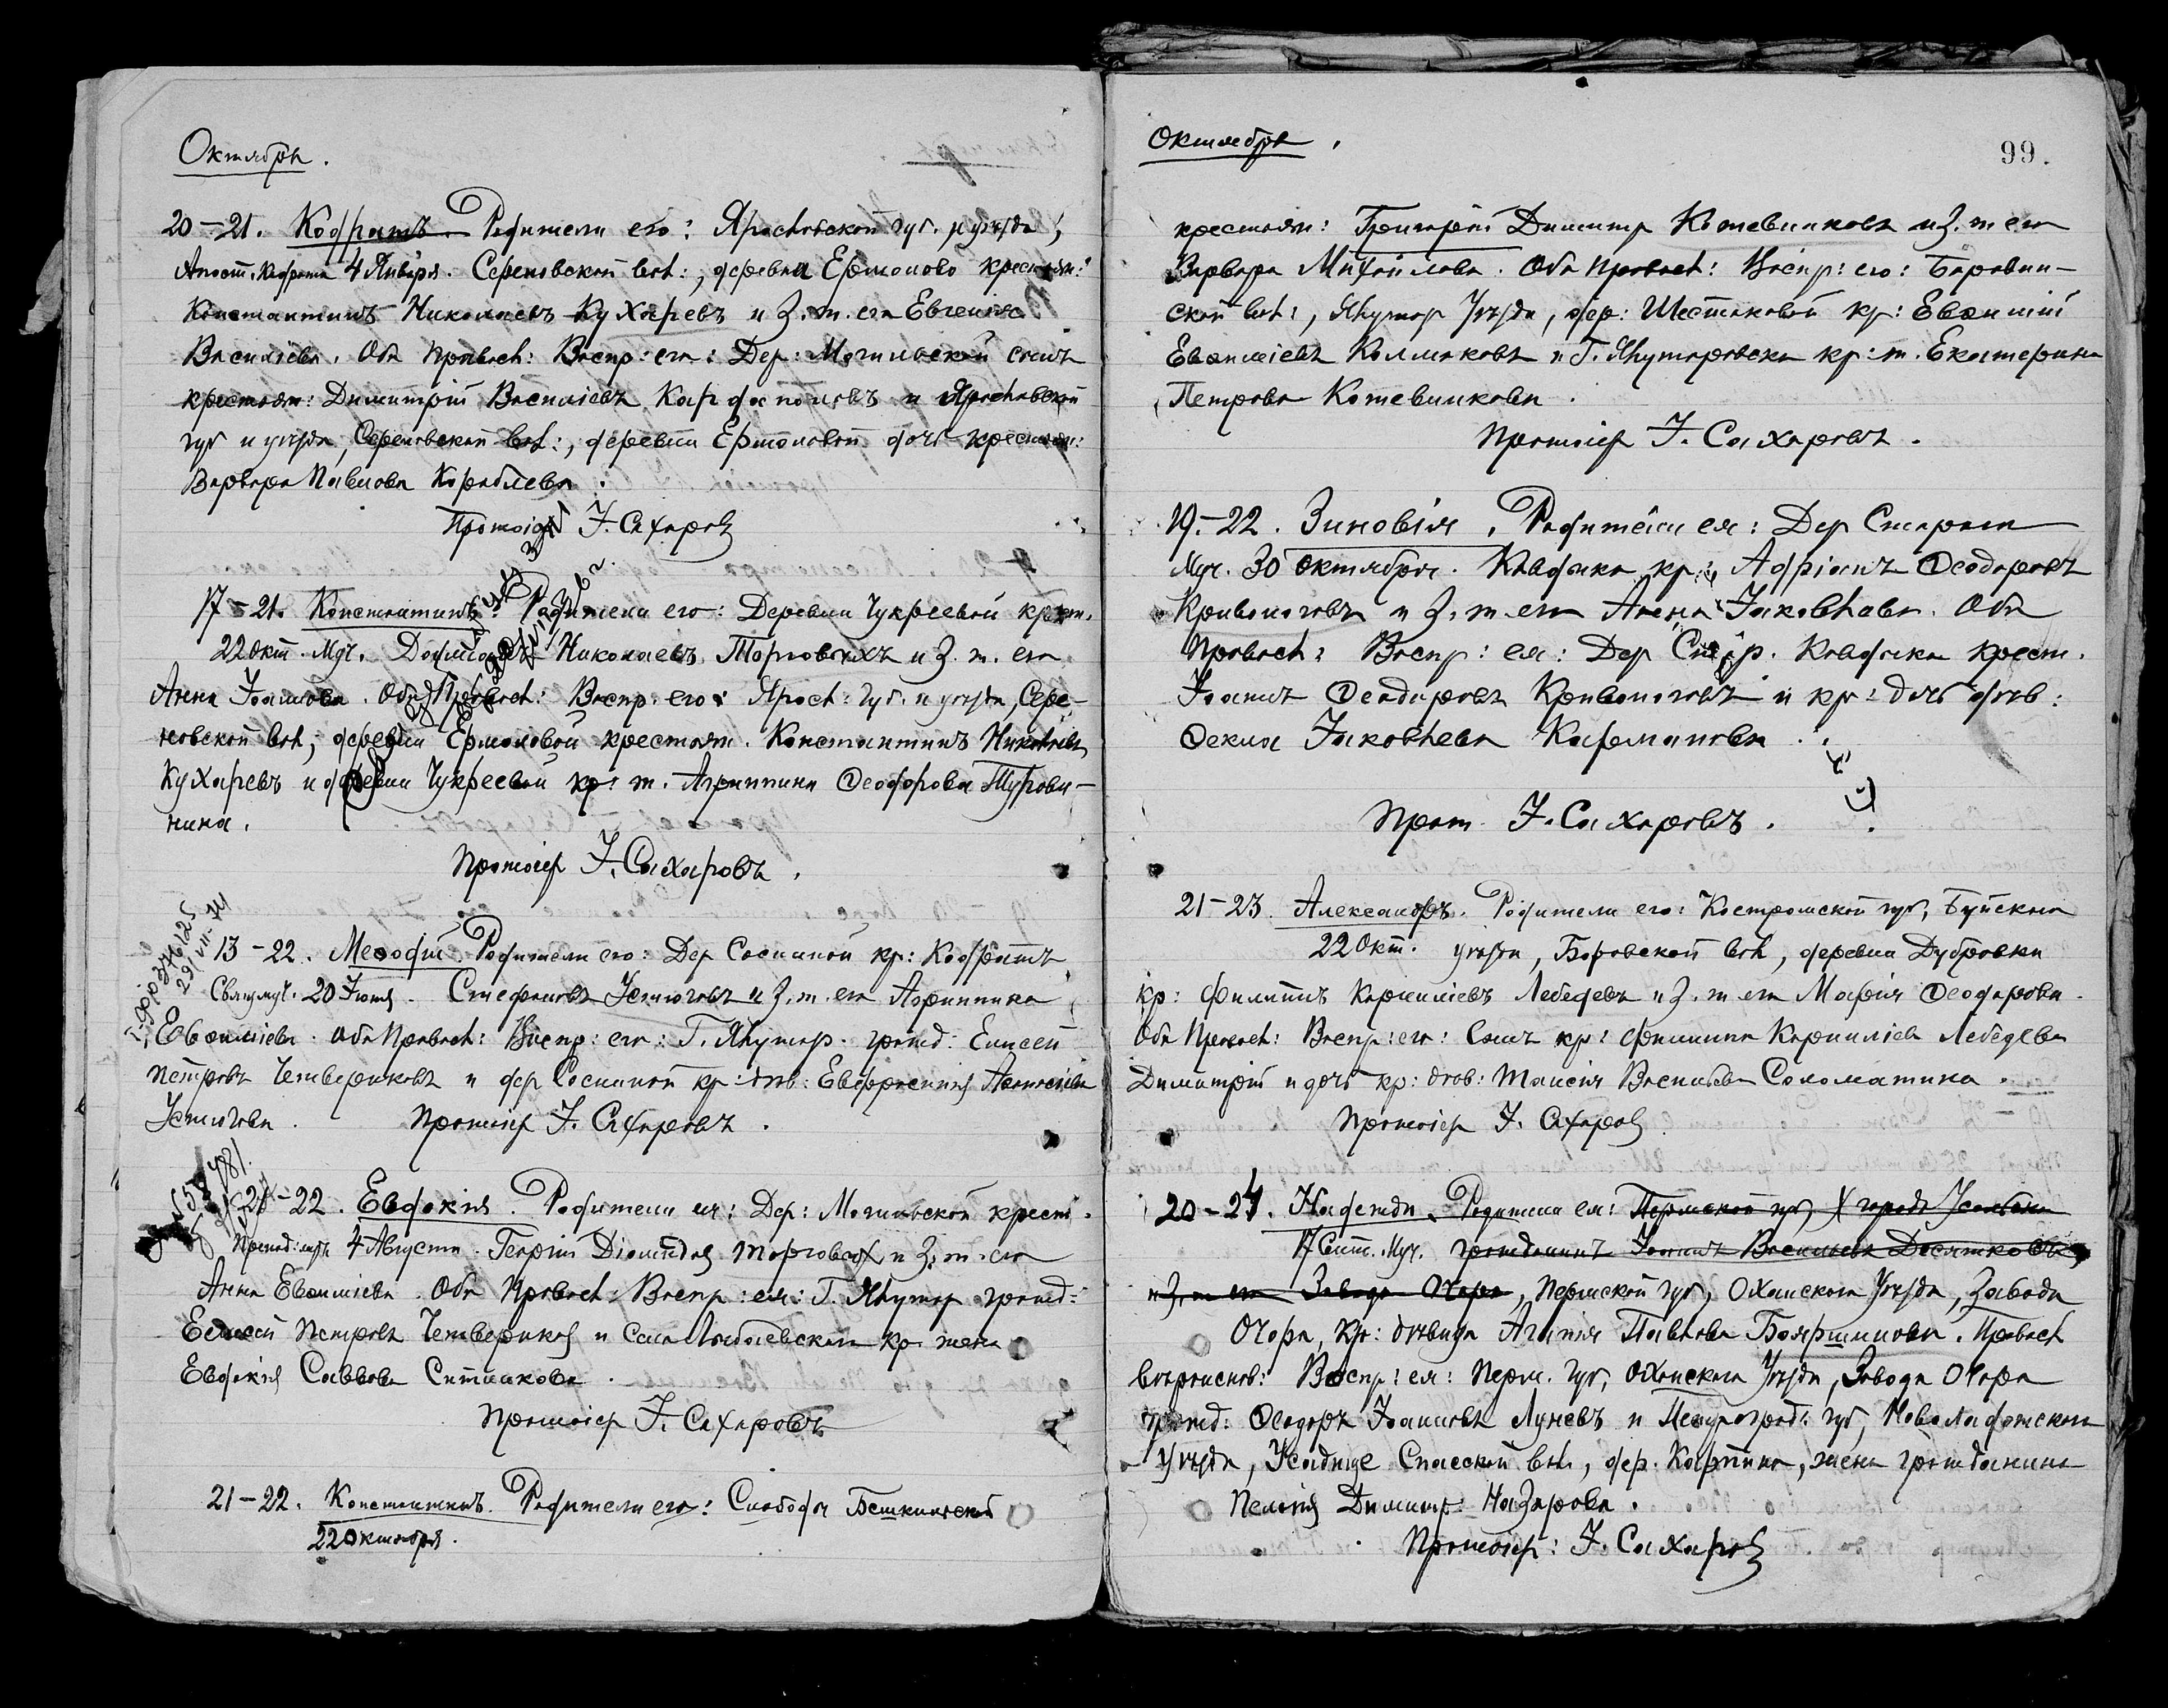 Октябрь.
20–21. Кодратъ. Родители его: Ярославской губ. и уѣзда,
Апост. Кодрата 4 Января. Сереновской вол:, деревни Ермолово крестьян:
Константинъ Николаевъ Кухаревъ и З. ж. его Евгенія
Василіева. Оба Правосл: Воспр: его: Дер: Могильской сынъ
крестьян: Димитрій Василіевъ Карфаполовъ и Ярославской
губ и уѣзда, Сереновской вол:, деревни Ермоловой дочь крестьян:
Варвара Павлова Кораблева.
Протоіер І. Сахаровъ
17–21. Константинъ. Родители его: Деревни Чукреевой крест.
22 Окт. Муч. Николаевъ Торговыхъ и З. ж. его
Анна Іоаннова. Оба Правосл: Воспр. его: Яросл: губ. и уѣзда, Сере-
новской вол, деревни Ермоловой крестьян. Константинъ Николаевъ
Кухаревъ и деревни Чукреевой кр: ж. Агриппина Ѳеодорова Турови-
нина.
Протоіер І. Сахаровъ.
13–22. Меѳодій. Родители его: Дер Сосниной кр: Кодратъ
Священмуч. 20 Іюня. Стефановъ Устюговъ и З. ж. его Агриппина
Евѳиміева. Оба Правосл: Воспр: его: Г. Ялутор. гражд. Елисей
Петровъ Четвериковъ и дер Сосниной кр: дѣв: Евфросинія
Устюгова. Протоіер І. Сахаровъ.
20–22. Евдокія. Родители ея: Дер: Могильской крест.
4 Августа. Георгій Діомидовъ Торговых и З. ж. его
Анна Евѳиміева. Оба Правосл: Воспр: ея: Г. Ялутор гражд:
Елисей Петровъ Четвериковъ и Села кр. жена
Евдокія Саввова Ситникова.
Протоіер І. Сахаровъ
21–22. Константинъ. Родители его: Слободы Бешкильской
22 октября.
Октябрь.
99.
крестьян: Григорій Димитр Котевниковъ и З. ж его
Варвара Михайлова. Оба Правосл: Воспр: его: Боровин-
ской вол:, Ялутор Уѣзда, дер: Шестаковой кр: Евѳимій
Евѳиміевъ Колмаковъ и Г. Ялуторовска кр: ж. Екатерина
Петрова Котевникова.
Протоіер І. Сахаровъ.
19–22. Зиновія. Родители ея: Дер Старого
Муч. 30 Октября. Кавдыка кр: Адріанъ Ѳеодоровъ
Кривоноговъ и З. ж. его Анна Іаковлева. Оба
Правосл: Воспр: ея: Дер Стар. Кавдыка крест.
Іоаннъ Ѳеодоровъ Кривоноговъ и кр: дочь дѣв:
Ѳекла Іаковлева
Прот. І. Сахаровъ.
21–23. Александръ. Родители его: Костромской губ, Буйскаго
22 Окт. уѣзда, Боровской вол, деревни Дубровки
кр: Филиппъ Корниліевъ Лебедевъ и З. ж его Марія Ѳеодорова.
Оба Правосл: Воспр: его: Сынъ кр: Филиппа Корниліева Лебедева
Димитрій и дочь кр: дѣв: Таисія Васильева Соломатина.
Протоіер І. Сахаровъ
20–24. Надежда. Родители ея: Пермской губ, города
17 Сент. Муч. гражданинъ Іоаннъ Васильевъ Десятковъ
и З. ж его Завода Очера, Пермской губ, Оханскаго Уѣзда, Завода
Очера, Кр: дѣвица Агапія Павлова Бояршинова. Правосл
вѣроиспов: Воспр: ея: Перм. губ, Оханскаго Уѣзда, Завода Очера
гражд: Ѳеодоръ Іоанновъ Луневъ и Петроград: губ, Новоладожскаго
Уѣзда, Усадище Спасской вол, дер. Картина, жена гражданина
Пелагія Димитр Назарова.
Протоіер: І. Сахаровъ